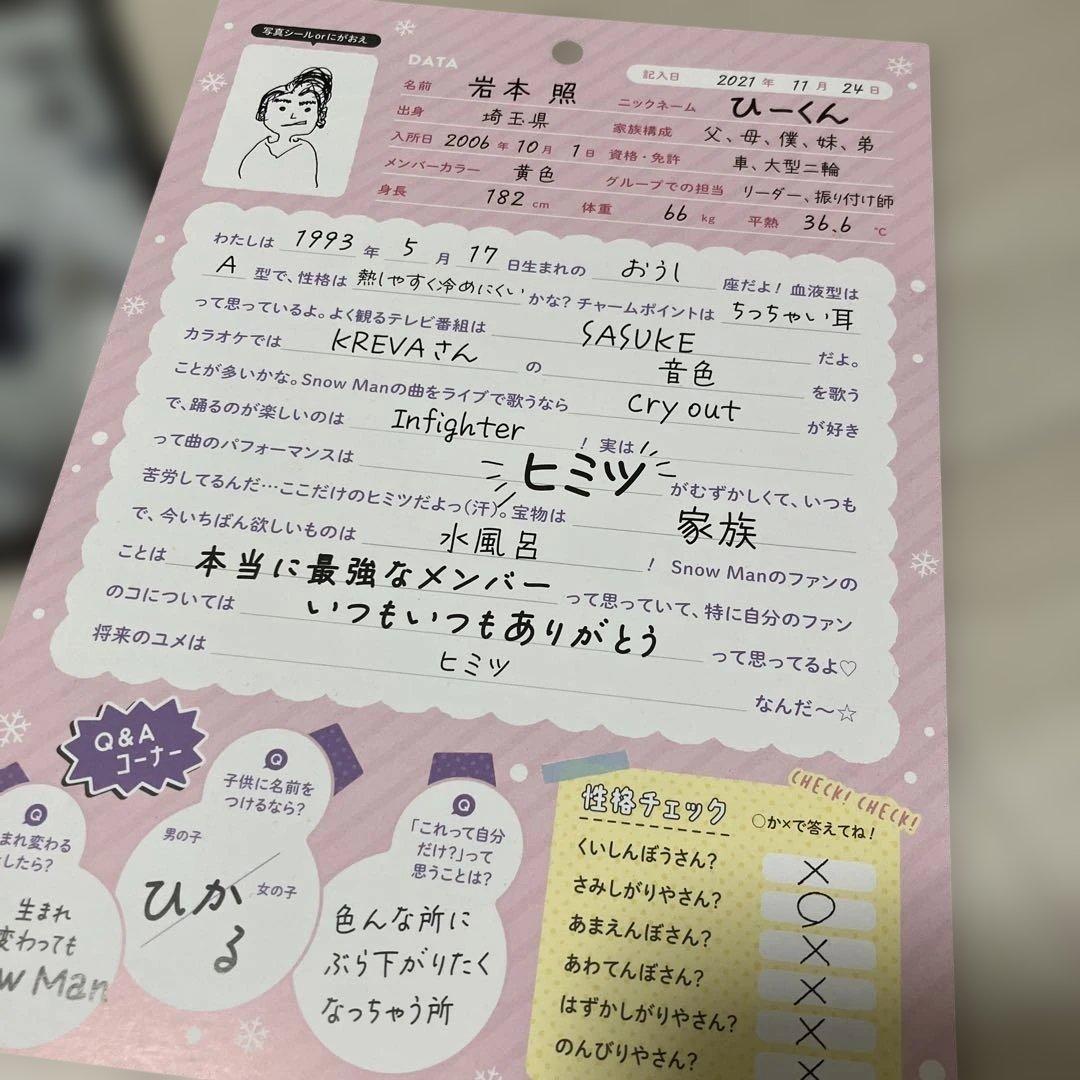 写真シールorにがおえ
DATA
記入日 2021年 11月 24日
名前 岩本 照 ニックネーム ひーくん
出身 埼玉県 家族構成 父、母、僕、妹、弟
入所日 2006年 10月 1日 資格・免許 車、大型二輪
メンバーカラー 黄色 グループでの担当 リーダー、振り付け師
身長 182cm 体重 66kg 平熱 36.6℃
わたしは 1993年 5月 17日生まれの おうし座だよ!血液型は
A型で、性格は 熱しやすく冷めにくい かな?チャームポイントは ちっちゃい耳
って思っているよ。よく観るテレビ番組は SASUKE だよ。
カラオケでは KREVAさん の 音色 を歌う
ことが多いかな。Snow Manの曲をライブで歌うなら Cry out が好き
で、踊るのが楽しいのは Infighter !実は
って曲のパフォーマンスは ヒミツ がむずかしくて、いつも
苦労してるんだ…ここだけのヒミツだよっ(汗)。宝物は 家族
で、今いちばん欲しいものは 水風呂 ! Snow Manのファンの
ことは 本当に最強なメンバー って思っていて、特に自分のファン
のコについては いつもいつもありがとう って思ってるよ♡
将来のユメは ヒミツ なんだ〜☆
Q&A
コーナー
Q
まれ変わる
したら?
生まれ
変わっても
w Man
Q
子供に名前を
つけるなら?
男の子
女の子
ひか
る
Q
「これって自分
だけ?」って
思うことは?
色んな所に
ぶら下がりたく
なっちゃう所
CHECK! CHECK!
性格チェック ○か×で答えてね!
くいしんぼうさん? ×
さみしがりやさん? ○
あまえんぼさん? ×
あわてんぼさん? ×
はずかしがりやさん? ×
のんびりやさん? ×